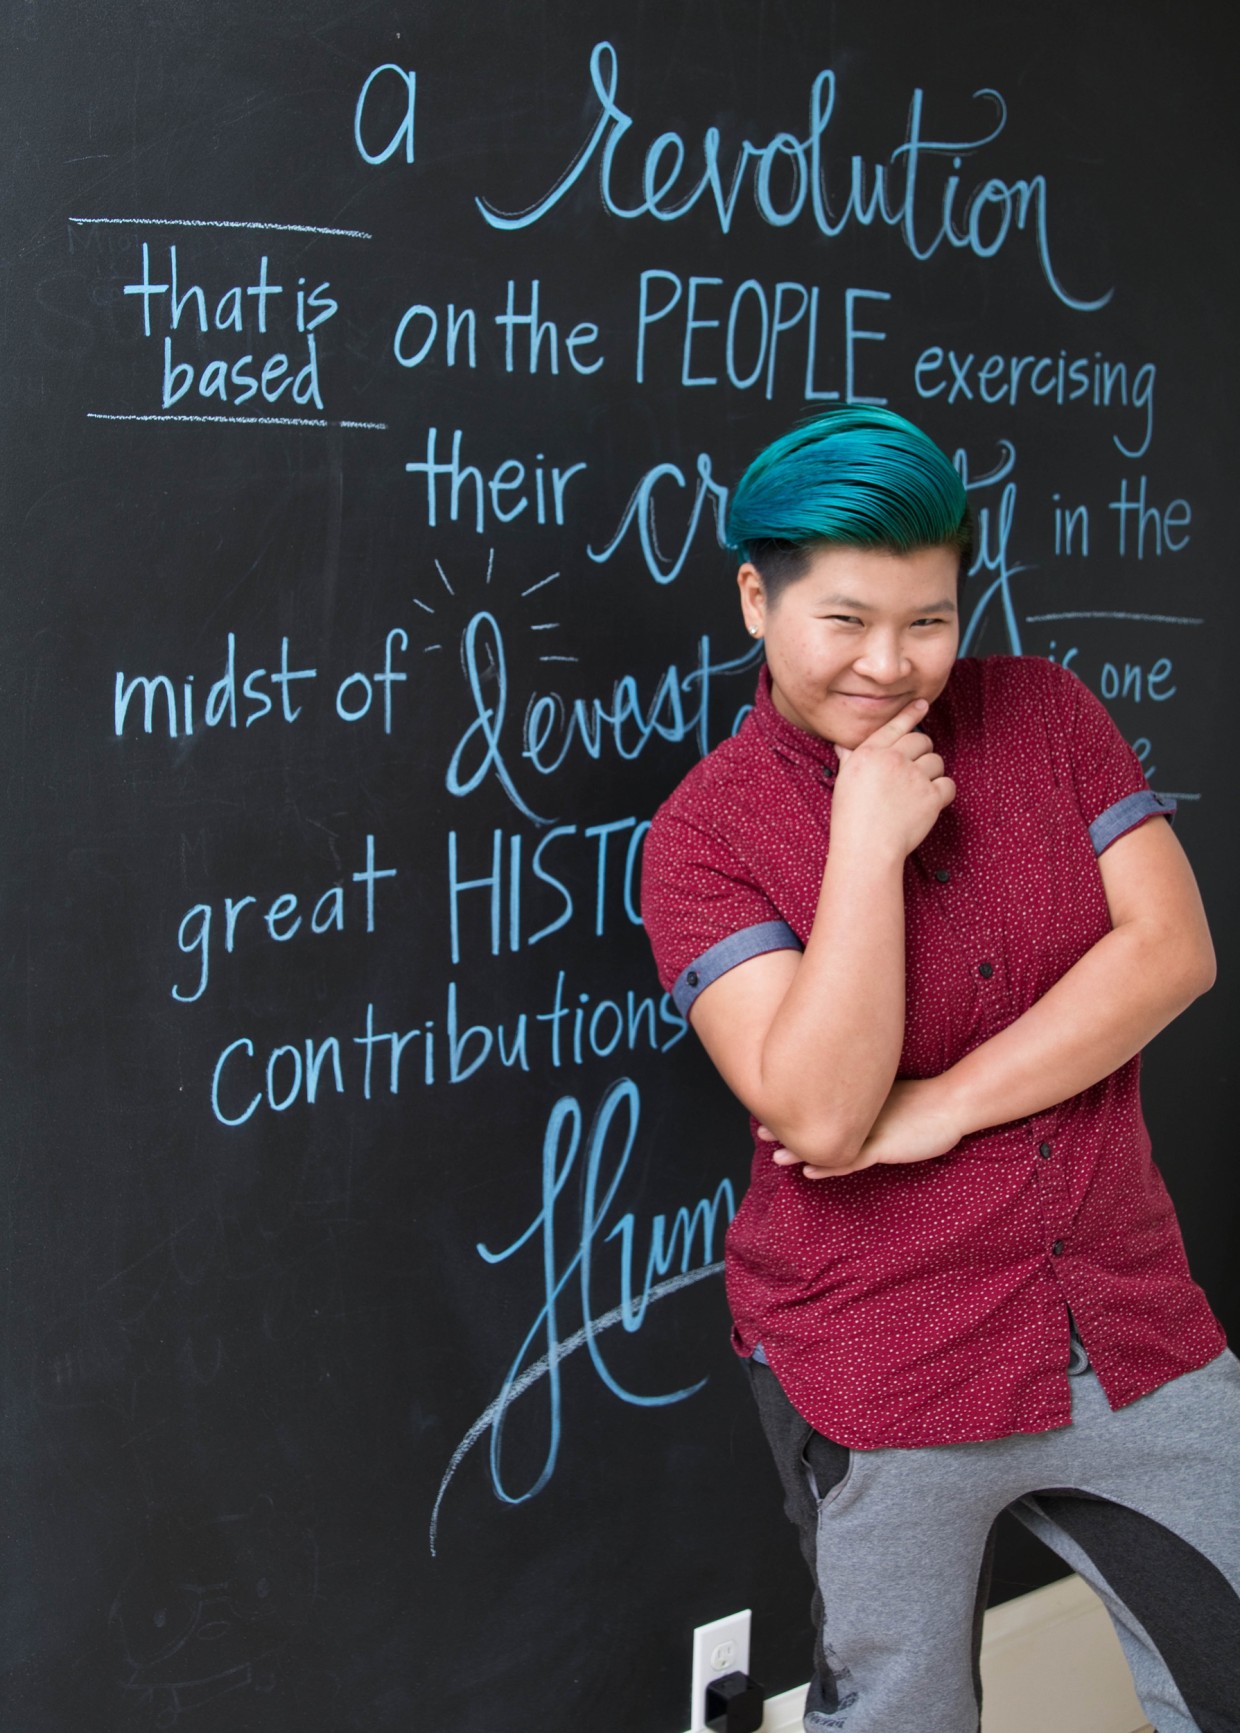 a revolution
that is based on the PEOPLE exercising
their in the
midst of is one
great
contributions